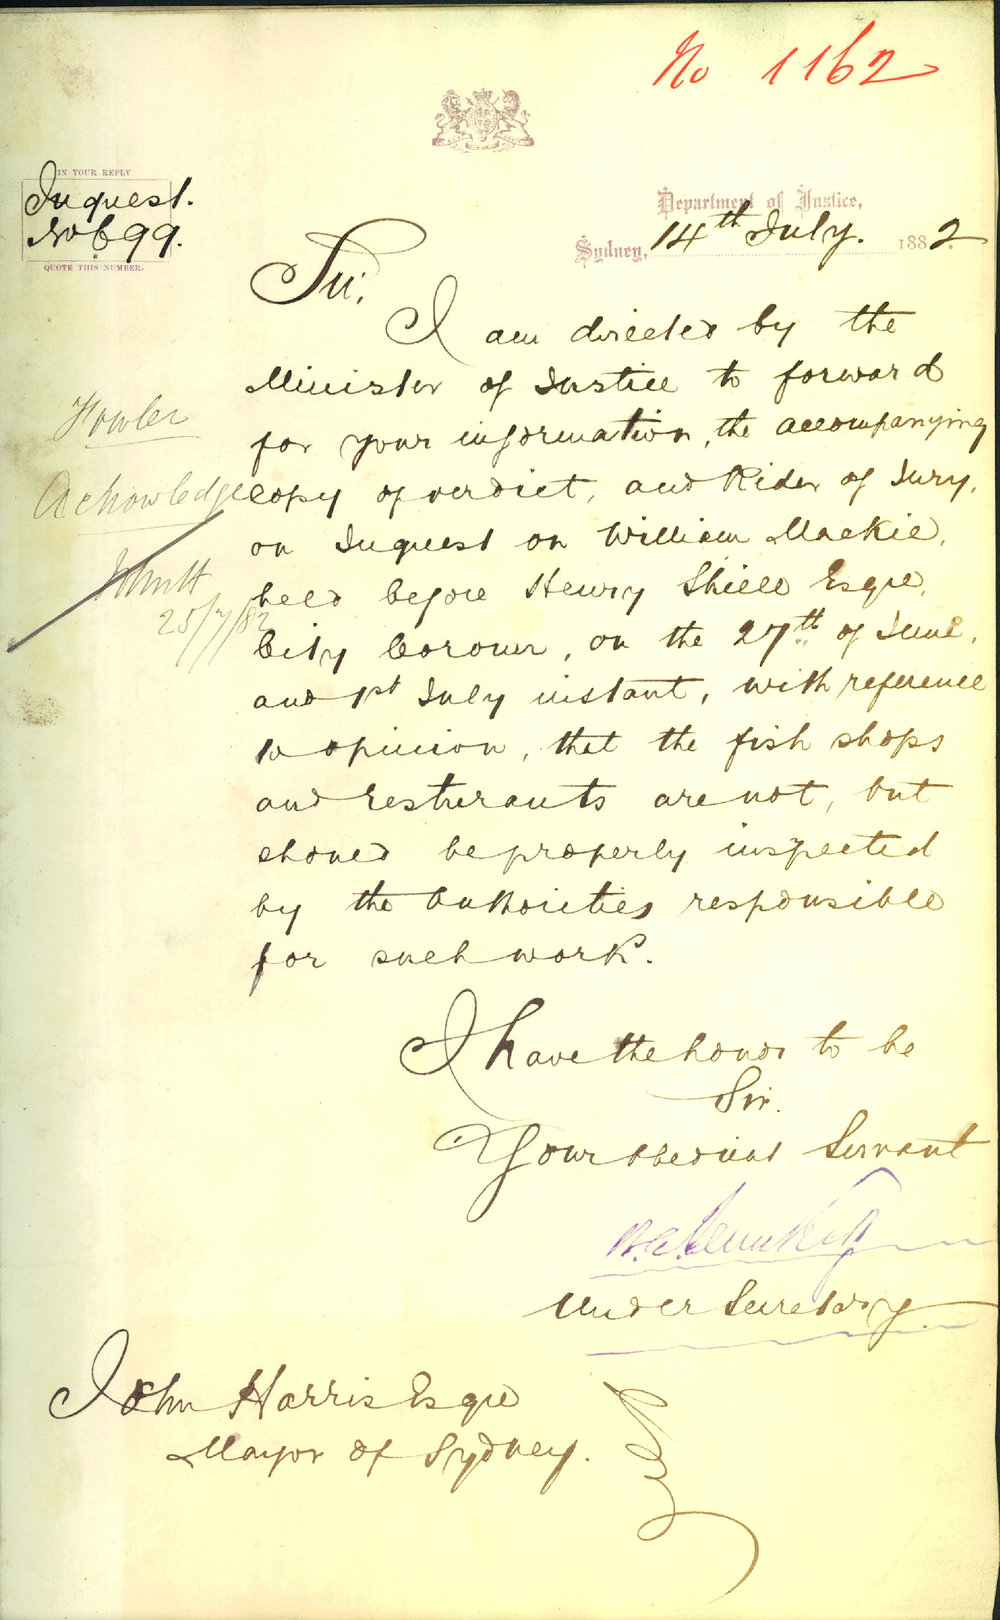 No 1162
IN YOUR REPLY
Inquest.
No 699.
QUOTE THIS NUMBER.
Department of Justice,
Sydney, 14th July. 1882.
Sir,
I am directed by the
Minister of Justice to forward
for your information, the accompanying
copy of verdict, and Rider of Jury,
on Inquest on William Mackie,
held before Henry Shiell Esqre,
City Coroner, on the 27th of June,
and 1st July instant, with reference
to opinion, that the fish shops
and resturants are not, but
should be properly inspected
by the Authorities responsible
for such work.
I have the honor to be
Sir.
Your obedient Servant
Under Secretary.
John Harris Esqre
Mayor of Sydney.
Fowler
Acknowledge
25/7/82